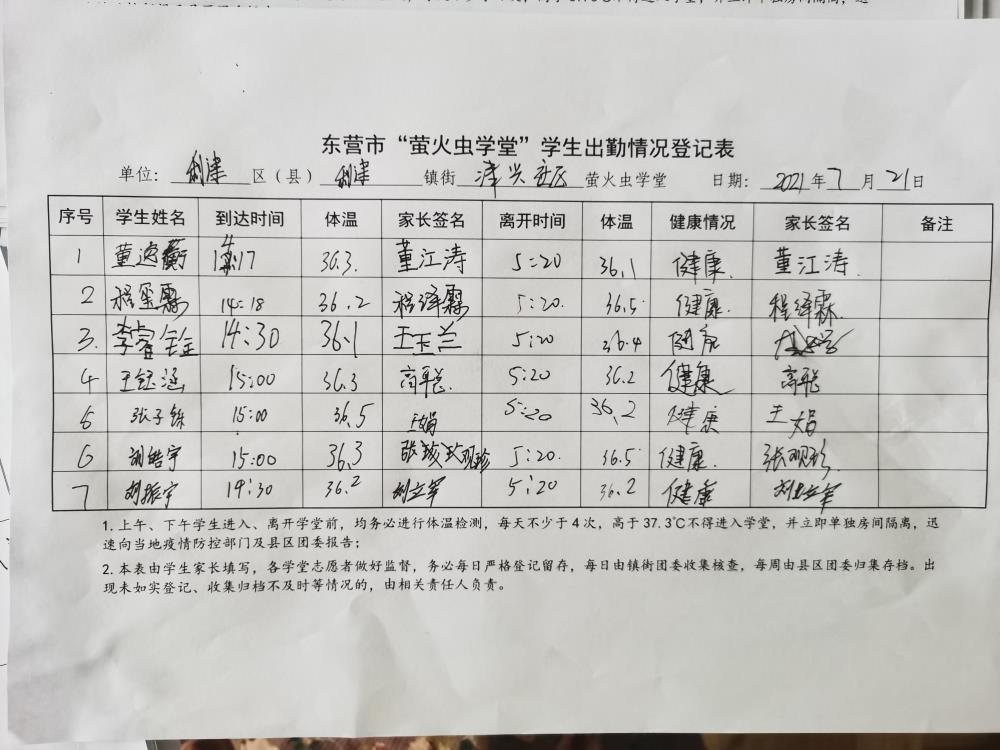 东营市“萤火虫学堂”学生出勤情况登记表
单位：利津区（县）利津镇街津兴社区萤火虫学堂 日期：2021年7月21日
序号 学生姓名 到达时间 体温 家长签名 离开时间 体温 健康情况 家长签名 备注
1 董 衡 17 36.3. 董江涛 5:20 36.1 健康. 董江涛.
2 程 霖 14:18 36.2 程绎霖 5:20. 36.5 健康. 程绎霖.
3. 李睿 14:30 36.1 王玉兰 5:20 36.4 健康
4 王钰涵 15:00 36.3 高聪. 5:20 36.2 健康 高聪
5 张子铄 15:00 36.5 王娟 5:20 36.2 健康 王娟
6 胡皓宇 15:00 36.3 张 观珍 5:20. 36.5 健康. 张观珍.
7 刘振宇 14:30 36.2 刘立军 5:20 36.2 健康 刘立军
1. 上午、下午学生进入、离开学堂前，均务必进行体温检测，每天不少于4次，高于37.3℃不得进入学堂，并立即单独房间隔离，迅
速向当地疫情防控部门及县区团委报告；
2. 本表由学生家长填写，各学堂志愿者做好监督，务必每日严格登记留存，每日由镇街团委收集核查，每周由县区团委归集存档。出
现未如实登记、收集归档不及时等情况的，由相关责任人负责。